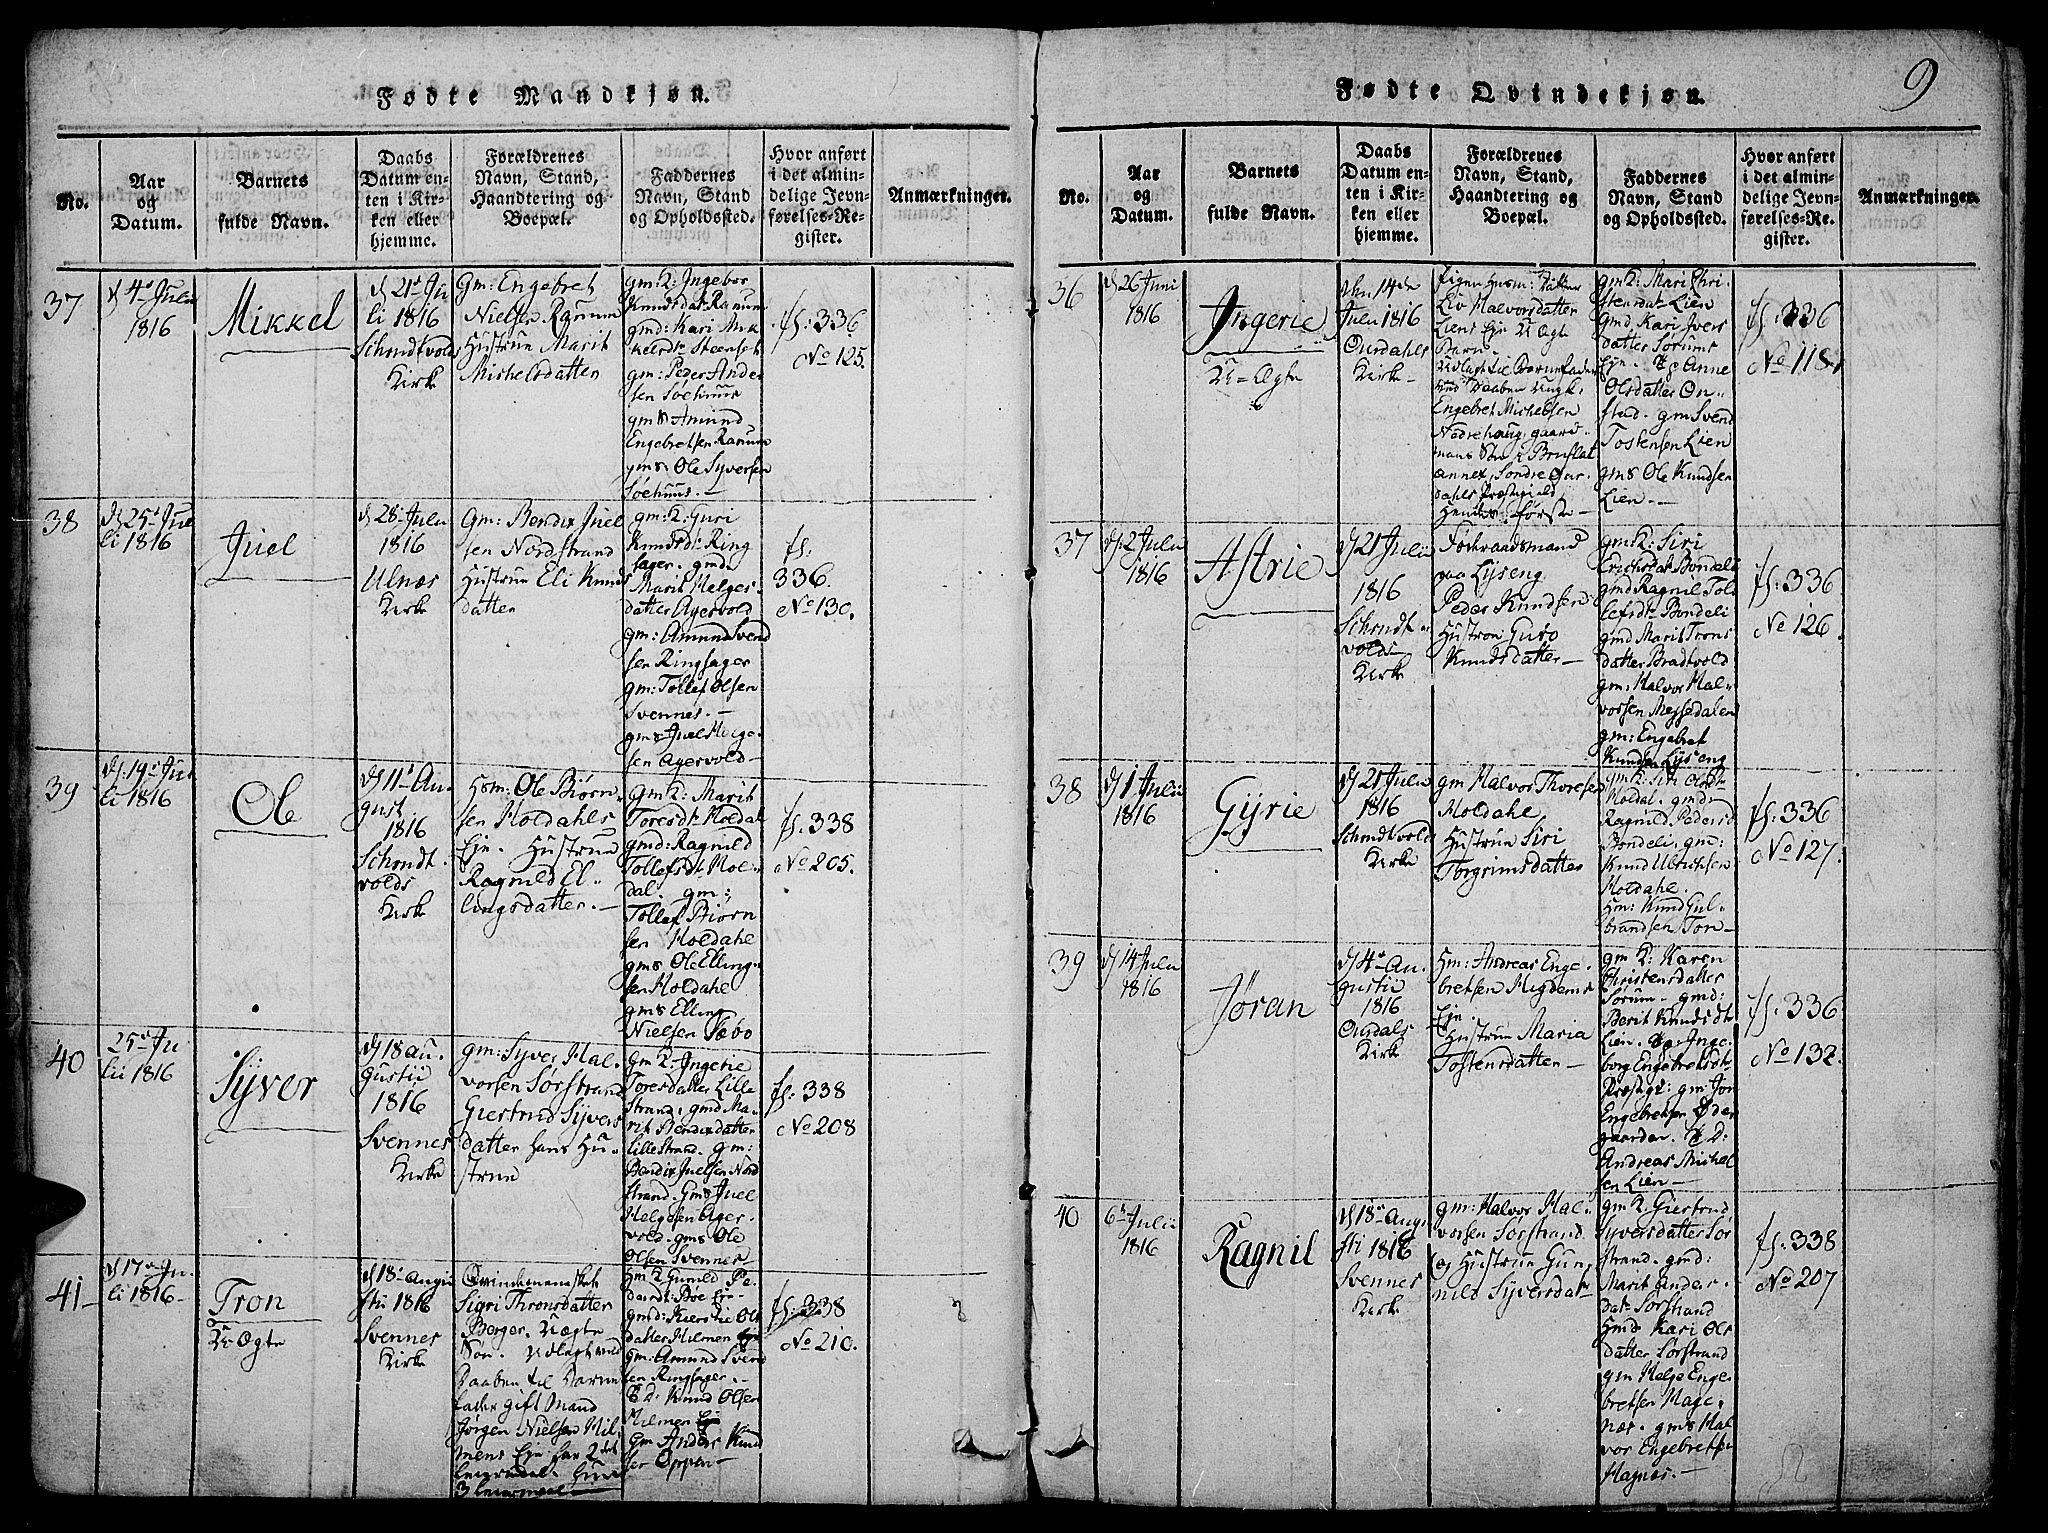 Fødte Mandkjøn.
No.
Aar
og
Datum.
Barnets
fulde Navn.
Daabs
Datum en-
ten i Kir-
ken eller
hjemme.
Forældrenes
Navn, Stand,
Haandtering og
Boepæl.
Faddernes
Navn, Stand
og Opholdssted.
Hvor anført
i det almin-
delige Jevn-
førelses-Re-
gister.
Anmærkninger.
37
d 4de Julii
1816
Mikkel
d 21de Ju
li 1816
Schrudtvolds
Kirke
Gm: Engebret
Nielsen Ranum
Hustrue Marit
Michelsdatter
gm: K: Ingebor
Knudsdat: Ranum
gmd: Kari Mik
kelsdt: Steenset
gm: Peder Ander
sen Søehuus
gms Amund
Engebretsen Ranum
gms Ole Syversen
Søehuus. —
fs: 336
No 125.
38
d 25de Jul
li 1816
Juel
d 28de Julii
1816
Ulnæs
Kirke
Gm: Bendix Juel
sen Nordstrand
Hustrue Eli Knuds
datter
gm: K: Guri
Knudsdt: Ring
sager. gmd
Marit Helges
datter Agervold
gm: Amund Svend
sen Ringsager
gm: Tollef Olsen
Svennes. —
gms Juel Helge-
sen Agervold —
fs:
336.
No 130.
39
d: 19de Jul
li 1816
Ole
d 11te Au
gust
1816
Schrudt
volds
Kirke
Hsm: Ole Biørn
sen Holdahls
Eje. Hustrue
Ragnild El-
lingsdatter. —
gm: K: Marit
Toresdt: Holdal
gmd: Ragnild
Tollefsdt: Hol-
dal. gm:
Tollef Biørn
sen Holdahl
gms Ole Elling-
sen Holdahl
gms Elling
Nielsen Sæbo
fs: 338
No 205.
40
25de Ju
lii 1816
Syver
d 18 Au-
gustii
1816
Svennes
Kirke
gm: Syver Hal
vorsen Sørstrand
Giertrud Syvers
datter hans Hu-
strue
gm K: Ingerie
Toresdatter Lille
strand, gmd Ma-
rit Bendixdatter
Lillestrand. gm:
Bendix Juelsen Nord
strand. Gms Juel
Helgesen Ager-
vold. gms Ole
Olsen Svennes
fs: 338
No 208
41-
d 17de Ju-
li 1816-
Tron
U Ægte
d 18de Augu
sti 1816
Svennes
Kirke
Qvindemenesket
Sigri Thronsdatter
Berger. Uægte
Søn. Udlagt ved
Daaben til Barne
fader gift Mand
Jørgen Nielsen Hil-
mens Eje
Hm K Gunild Pe-
dersdt: Boe Eje-
gmd: Kierstie Ols
datter Hilmen Eje
gm: Amund Svend
sen Ringsager.
Knud Olsen
Hilmen Eje
Gm Anders Knud
sen Oppen —
fs: 338
No 210.
Fødte Qvindekjøn.
9
No.
Aar
og
Datum.
Barnets
fulde Navn.
Daabs
Datum en-
ten i Kir-
ken eller
hjemme.
Forældrenes
Navn, Stand,
Haandtering og
Boepæl.
Faddernes
Navn, Stand
og Opholdssted.
Hvor anført
i det almin-
delige Jevn-
førelses-Re-
gister.
Anmærkninger.
36
d 26 Juni
1816
Ingerie
U=Ægte
den 14de
Julii 1816
Ourdahls
Kirke —
Pigen
Liv Halvorsdatter
Liens Eje U Ægte
Barn.
Udlagt til Barnefader
ved Daaben Ungk:
Engebret Michelsen
Nedrehaug gaard-
mans Søn i Bruflat
annex, Søndre Our
dahls Præstegield
Hendes første —
gm K: Mari Chri
stensdat: Lien
Gmd Kari Ivers
datter Sørums
Eje. Anne
Olsdatter On-
stad. gm: Svend
Tostensen Lien
gms Ole Knudsen
Lien —
fs: 336
No 118.
37
d: 2 Julii
1816
Astrie
d 21 Julii
1816
Schrudt-
volds
Kirke
Føderaadsmand
paa Lyseng
Peder Knudsen
Hustrue Guro
Knudsdatter —
gm: K: Siri
Erichsdat: Bøndeli
gmd Ragnil Tol
lefsdt: Bøndeli
gmd Marit Trons
datter Bradtvold
gm: Halvor Hal-
vorsen Meysedalen
gm: Engebret
Knudsen Lyseng
fs: 336
No 126.
38
d 1 Julii
1816
Gyrie
d 21 Julii
1816
Schrudtvolds
Kirke
gm Halvor Thoresen
Holdahl
Hustrue Siri
Torgrimsdatter
gm K: Siri Olsdt
Holdal. gmd:
Ragnild Pedersd
Bøndeli, gm:
Knud Ulrichsen
Holdahl.
Hm: Knud Gul-
brandsen Ton-
fs: 336
No 127.
39
d 14 Julii
1816
Jøran
d 4de Au-
gustii
1816
Ourdals
Kirke
Hm: Andreas Enge-
bretsen Migdems
Eje.
Hustrue Maria
Tostensdatter —
gm K: Karen
Christensdatter
Sørum — gmd:
Berit Knudsdt
Lien. Inge-
borg Engebretsdt
Præstgd: gm: Jon
Engebretsen Øder
gaarden. D:
Andreas Michel
sen Lien —
fs: 336
No 132.
40
6te Julii
1816
Ragnil
d 18de Augu
sti 1816
Svennes
Kirke
gm: Halvor Hal-
vorsen Sørstrand
og Hustrue Gun
nild Syversdat
gm K: Giertrud
Syversdatter Sør
strand. gmd:
Marit Anders-
dat: Sørstrand
Hmd Kari Ols
datter Sørstrand
gm Helge Enge-
bretsen Hage-
næs. gms Hal
vor Engebretsen
Hagnæs. —
fs: 338
No 207